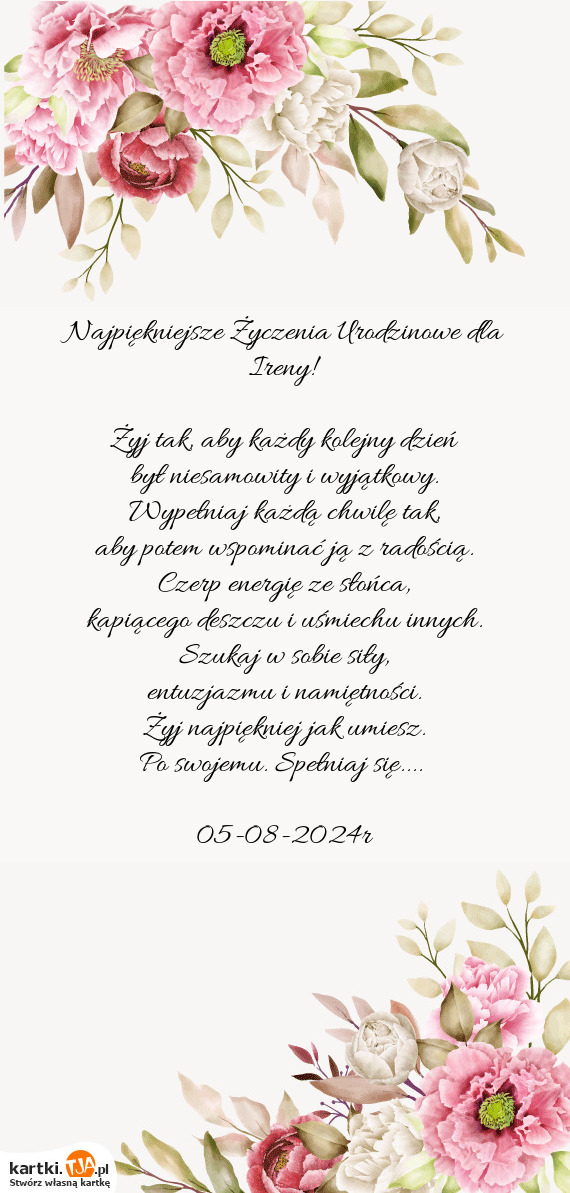 Najpiękniejsze Życzenia Urodzinowe dla
Ireny!
Żyj tak, aby każdy kolejny dzień
był niesamowity i wyjątkowy.
Wypełniaj każdą chwilę tak,
aby potem wspominać ją z radością.
Czerp energię ze słońca,
kapiącego deszczu i uśmiechu innych.
Szukaj w sobie siły,
entuzjazmu i namiętności.
Żyj najpiękniej jak umiesz.
Po swojemu. Spełniaj się....
05-08-2024r
kartki.TJA.pl
Stwórz własną kartkę